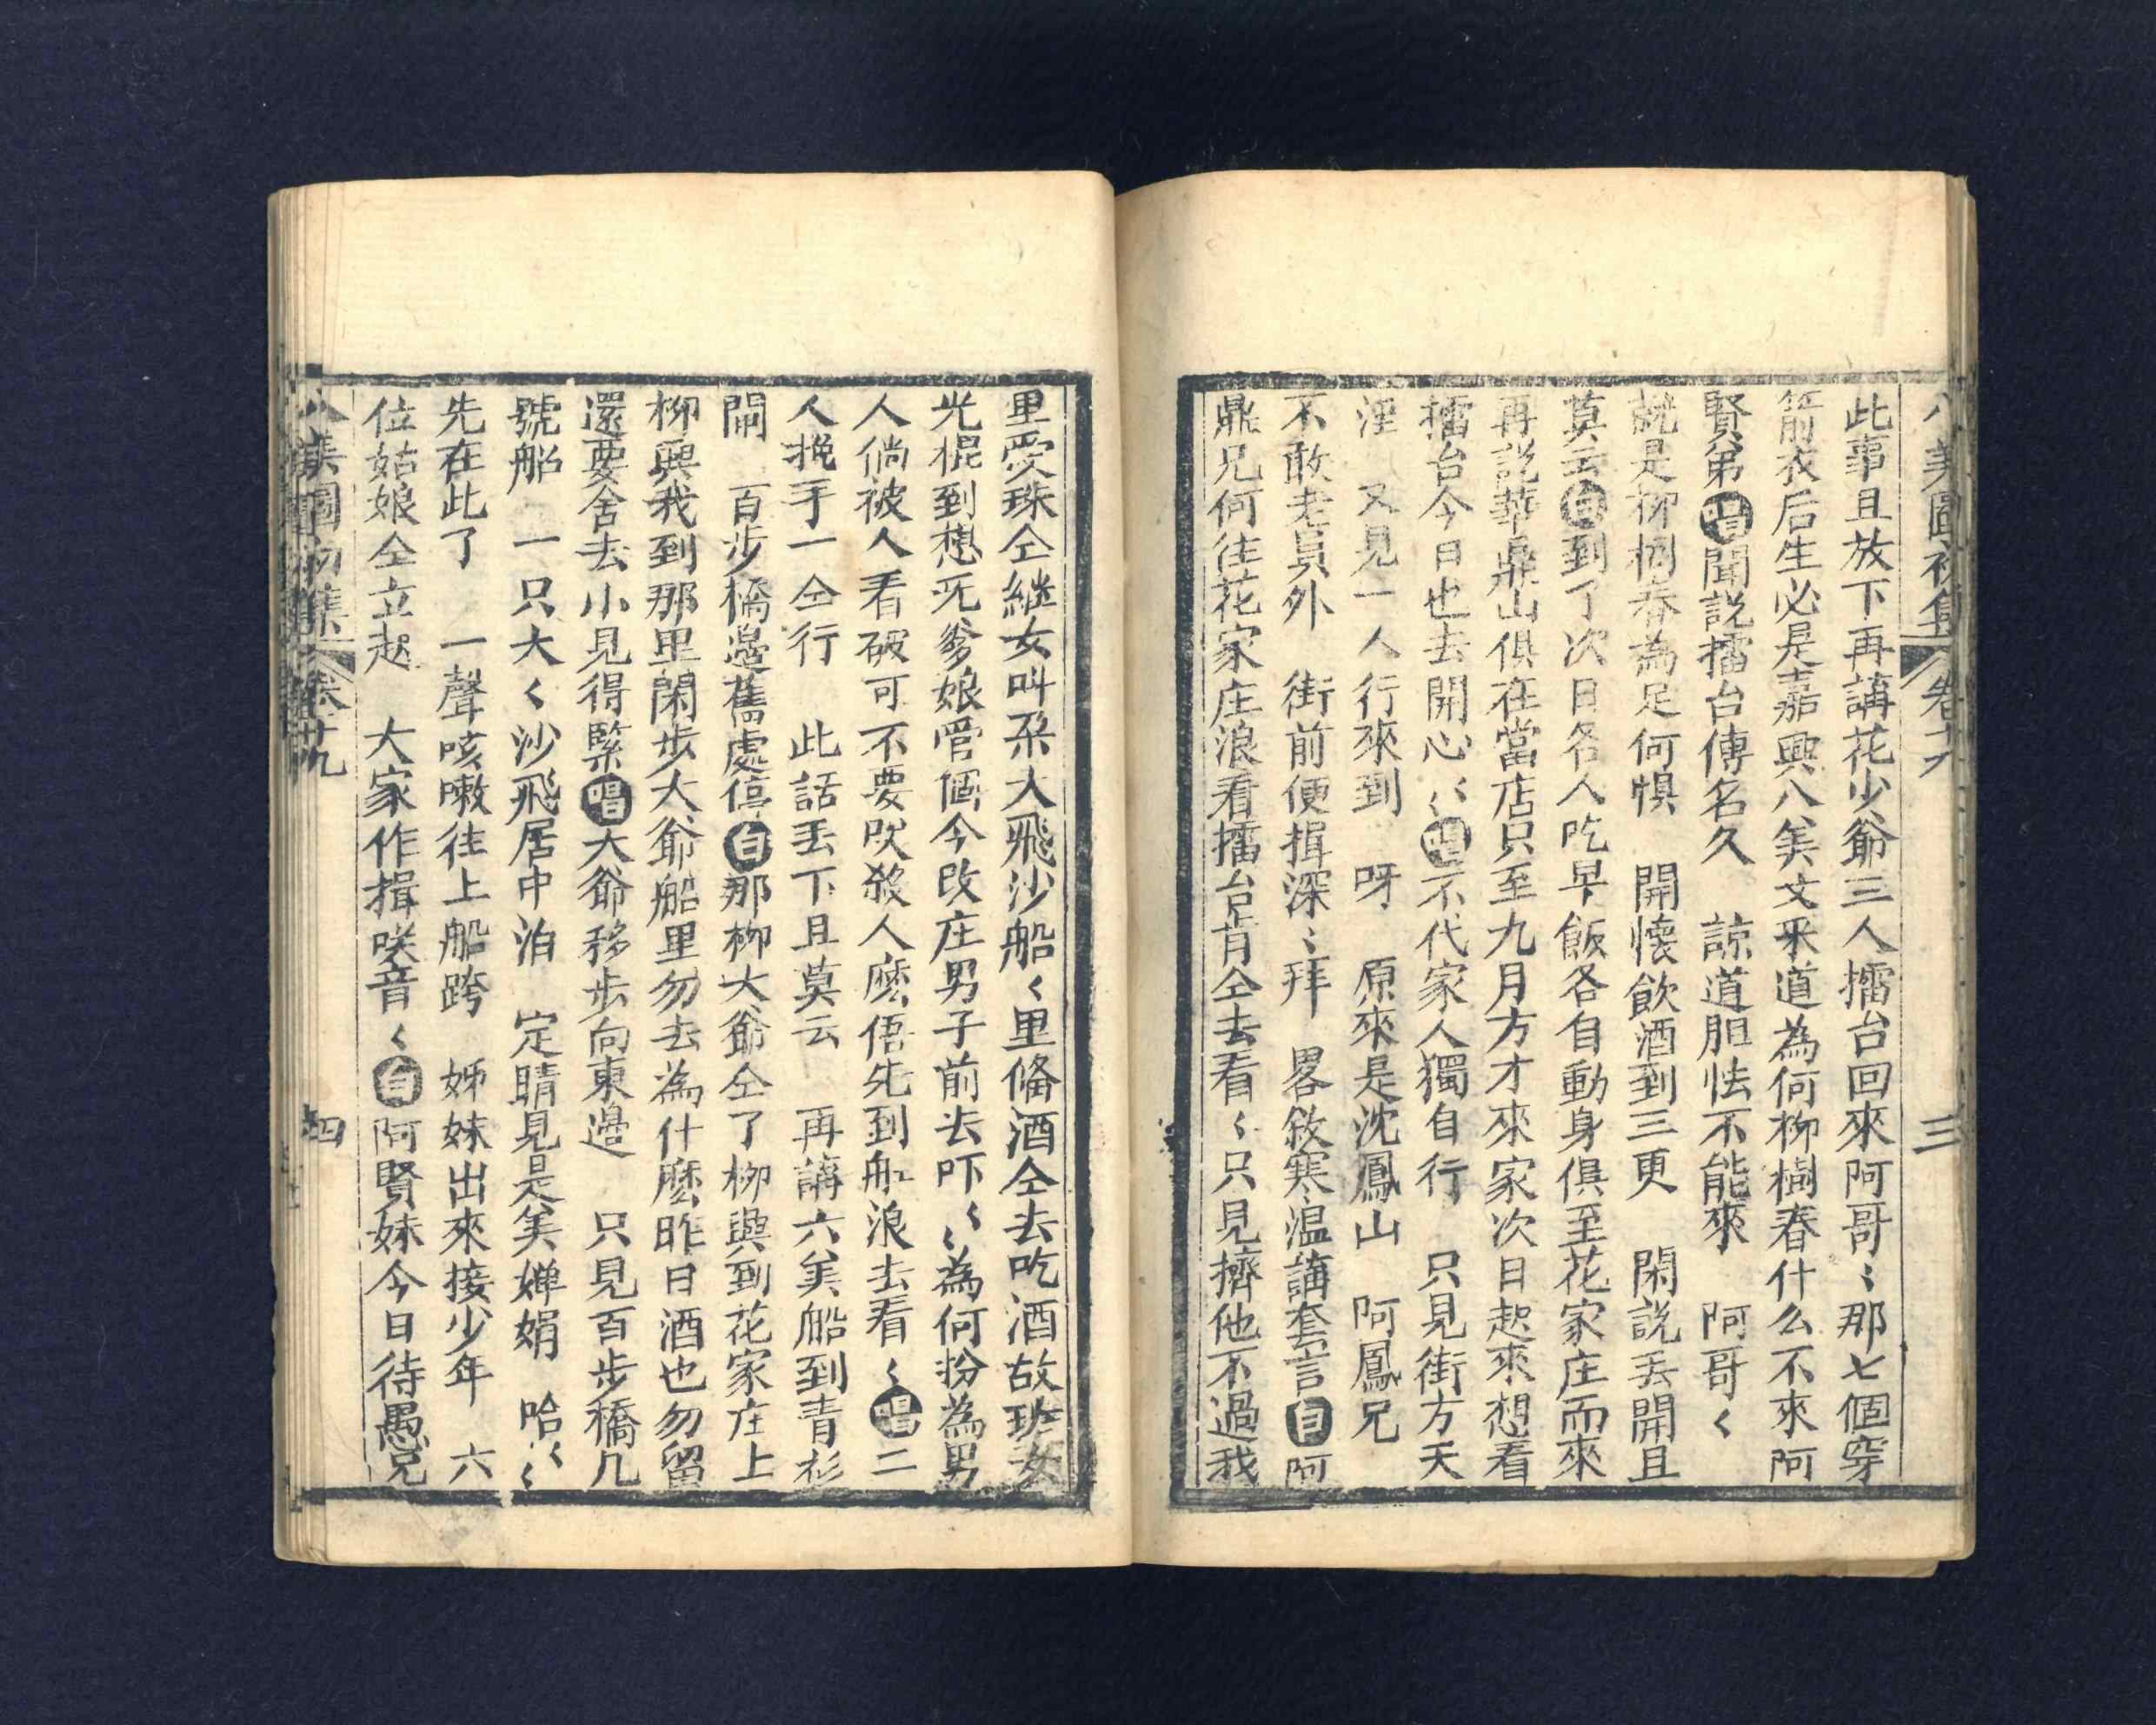 八美圖初集 卷十九 三
此事且放下再講花少爺三人擂台回來阿哥〻那七個穿
箭衣后生必是嘉興八美文釆道為何柳樹春什么不來阿
賢弟唱聞説擂台傳名久 諒道胆怯不能來 阿哥〻
説是柳樹春為足何惧 開懷飲酒到三更 閑説丟開且
莫云白到了次日各人吃早飯各自動身俱至花家庄而來
再説華鼎山俱在當店只至九月方才來家次日起來想看
擂台今日也去開心〻唱不代家人獨自行 只見街方天
淫 又見一人行來到 呀 原來是沈鳳山 阿鳳兄
不敢老員外 街前便揖深〻拜 畧敘寒温講套言白阿
鼎兄何往花家庄浪看擂台肯仝去看〻只見擠他不過我
里愛珠仝継女叫朶大飛沙船〻里俻酒仝去吃酒故班女
光棍到想旡爹娘管個今改庄男子前去吓〻為何扮為男
人倘被人看破可不要吹殺人麽俉先到舡浪去看〻唱二
人挽手一仝行 此話丟下且莫云 再講六美船到青衫
閘 百步橋邉舊處停白那柳大爺仝了柳興到花家庄上
柳興我到那里閑步大爺船里勿去為什麽昨日酒也勿留
還要舍去小見得緊唱大爺移步向東邉 只見百步橋几
號船 一只大〻沙飛居中泊 定睛見是美嬋娟 哈〻
先在此了 一聲咳嗽往上船跨 姊妹出來接少年 六
位姑娘仝立起 大家作揖咲音〻白阿賢妹今日待愚兄
八美圖初集 卷十九 四